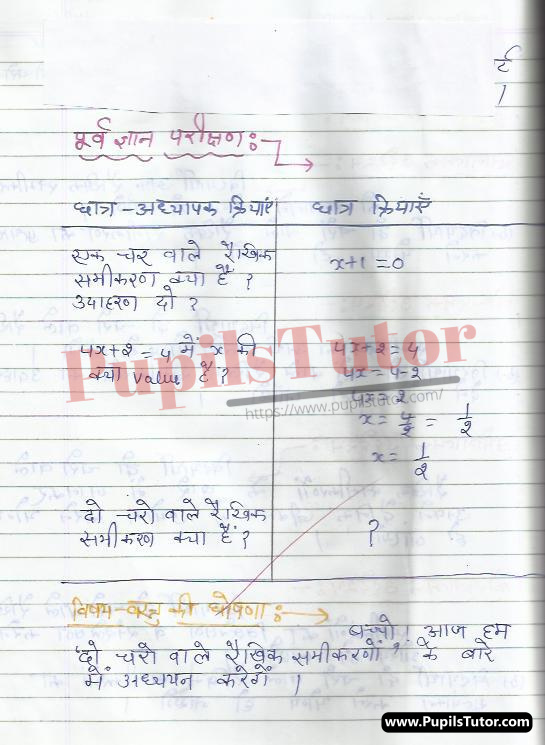 पूर्व ज्ञान परीक्षण :-
छात्र-अध्यापक क्रियाएं
छात्र क्रियाएँ
एक चर वाले रैखिक
समीकरण क्या है ?
उदाहरण दो ?
x+1=0
4x+2=4 में x की
क्या value है ?
4x+2=4
4x=4-2
4x=2
x=4/2=1/2
x=1/2
दो चरो वाले रैखिक
समीकरण क्या है ?
?
विषय-वस्तु की घोषणा :-
बच्चो ! आज हम
'दो चरो वाले रैखिक समीकरणों' के बारे
में अध्ययन करेगें ।
PupilsTutor
https://www.pupilstutor.com/
www.PupilsTutor.com